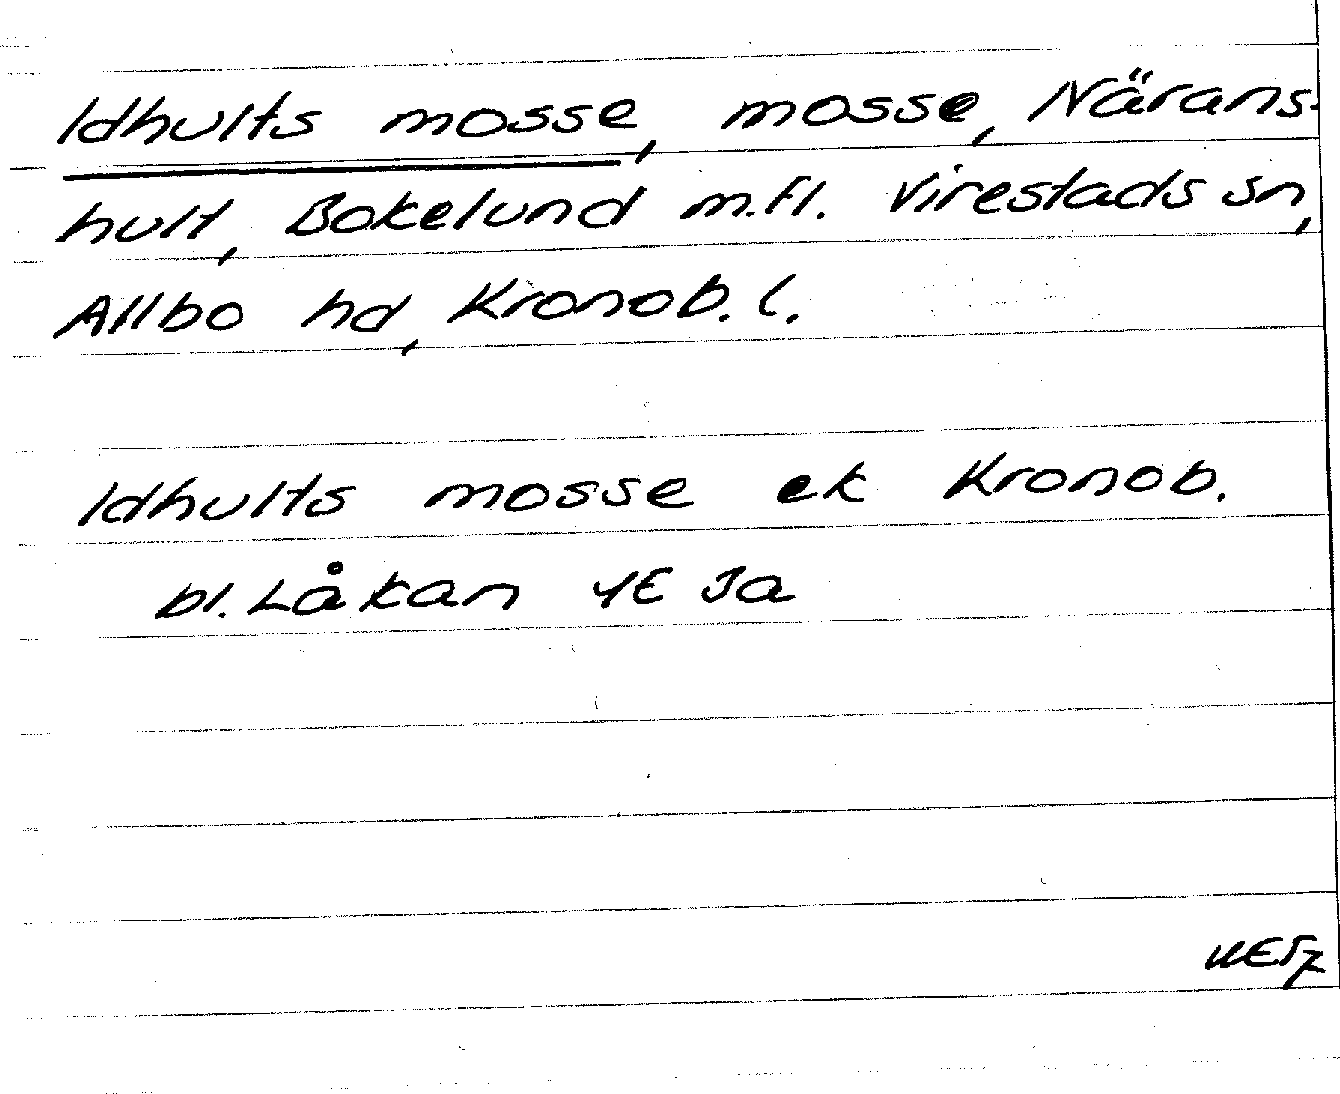 Idhults mosse, mosse, Närans-
hult, Bokelund m.fl. Virestads sn,
Allbo hd, Kronob. l.
Idhults mosse ek Kronob.
bl. Låkan 4E Ja